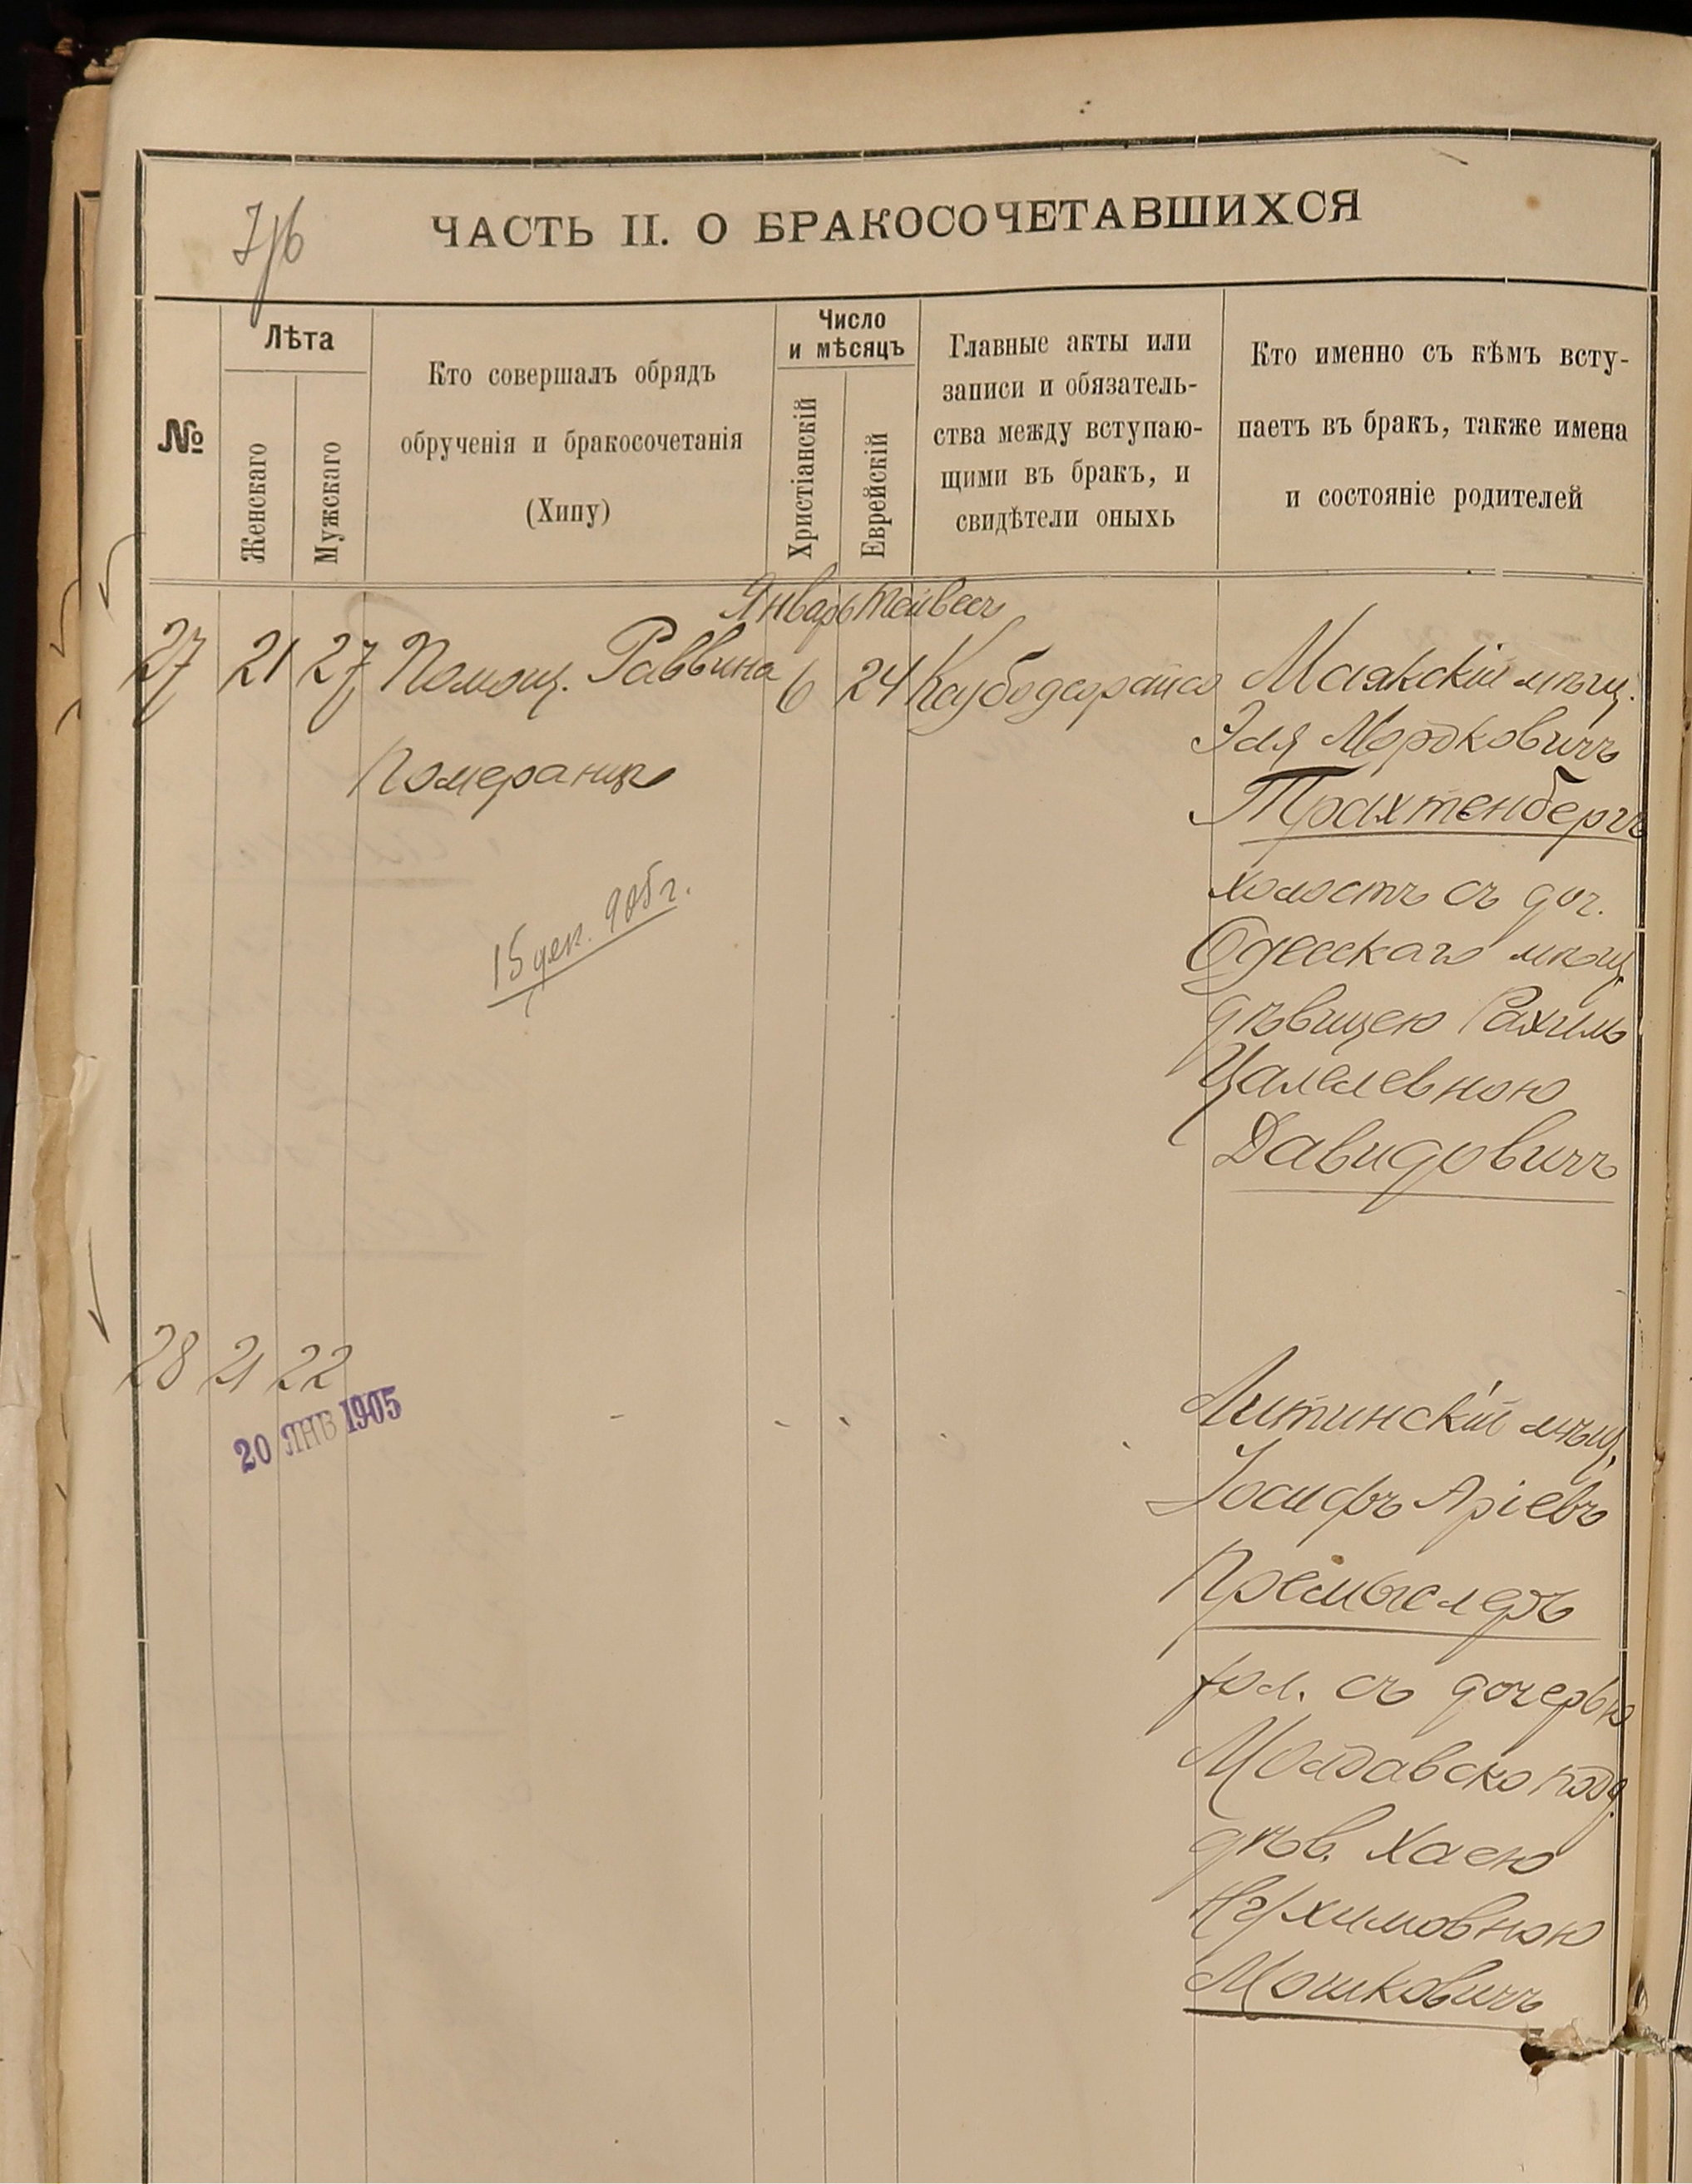 ЧАСТЬ II. О БРАКОСОЧЕТАВШИХСЯ
№
Лѣта
Женскаго
Мужскаго
Кто совершалъ обрядъ
обрученія и бракосочетанія
(Хипу)
Число
и мѣсяцъ
Христіанскій
Еврейскій
Главные акты или
записи и обязатель-
ства между вступаю-
щими въ бракъ, и
свидѣтели оныхъ
Кто именно съ кѣмъ всту-
паетъ въ бракъ, также имена
и состояніе родителей
Январь Тейвесъ
27 21 27 Помощ. Раввина 6 24 Маякскій мѣщ.
Померанцъ
Эля Мордковичъ
Трахтенбергъ
холостъ съ доч.
15 дек. 905 г.
Одесскаго мѣщ.
дѣвицею Рахиль
Цалелевною
Давидовичъ
28 21 22
20 ЯНВ 1905
Литинскій мѣщ.
Іосифъ Аріевъ
Премыслеръ
хол. съ дочерью
Молдавско подд.
дѣв. Хаею
Нухимовною
Мошковичъ